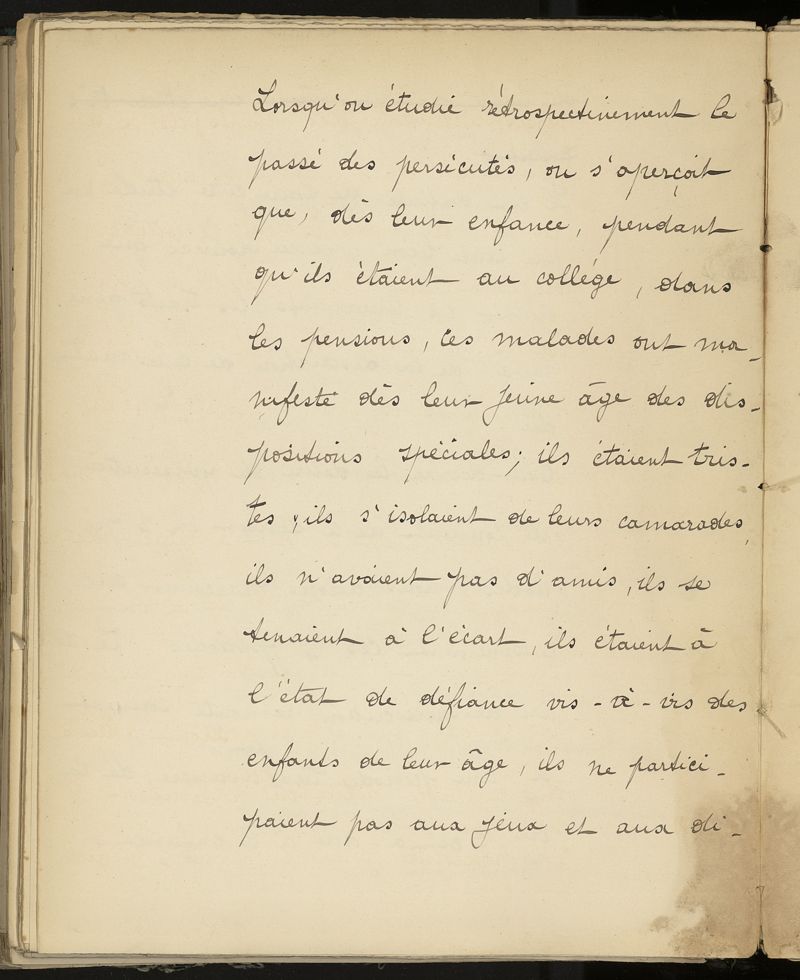 Lorsqu'on étudie rétrospectivement le
passé des persécutés, on s'aperçoit
que, dès leur enfance, pendant
qu'ils étaient au collége, dans
les pensions, ces malades ont ma-
nifesté dès leur jeune âge des dis-
positions spéciales; ils étaient tris-
tes; ils s'isolaient de leurs camarades,
ils n'avaient pas d'amis, ils se
tenaient à l'écart, ils étaient à
l'état de défiance vis-à-vis des
enfants de leur âge, ils ne partici-
paient pas aux jeux et aux di-